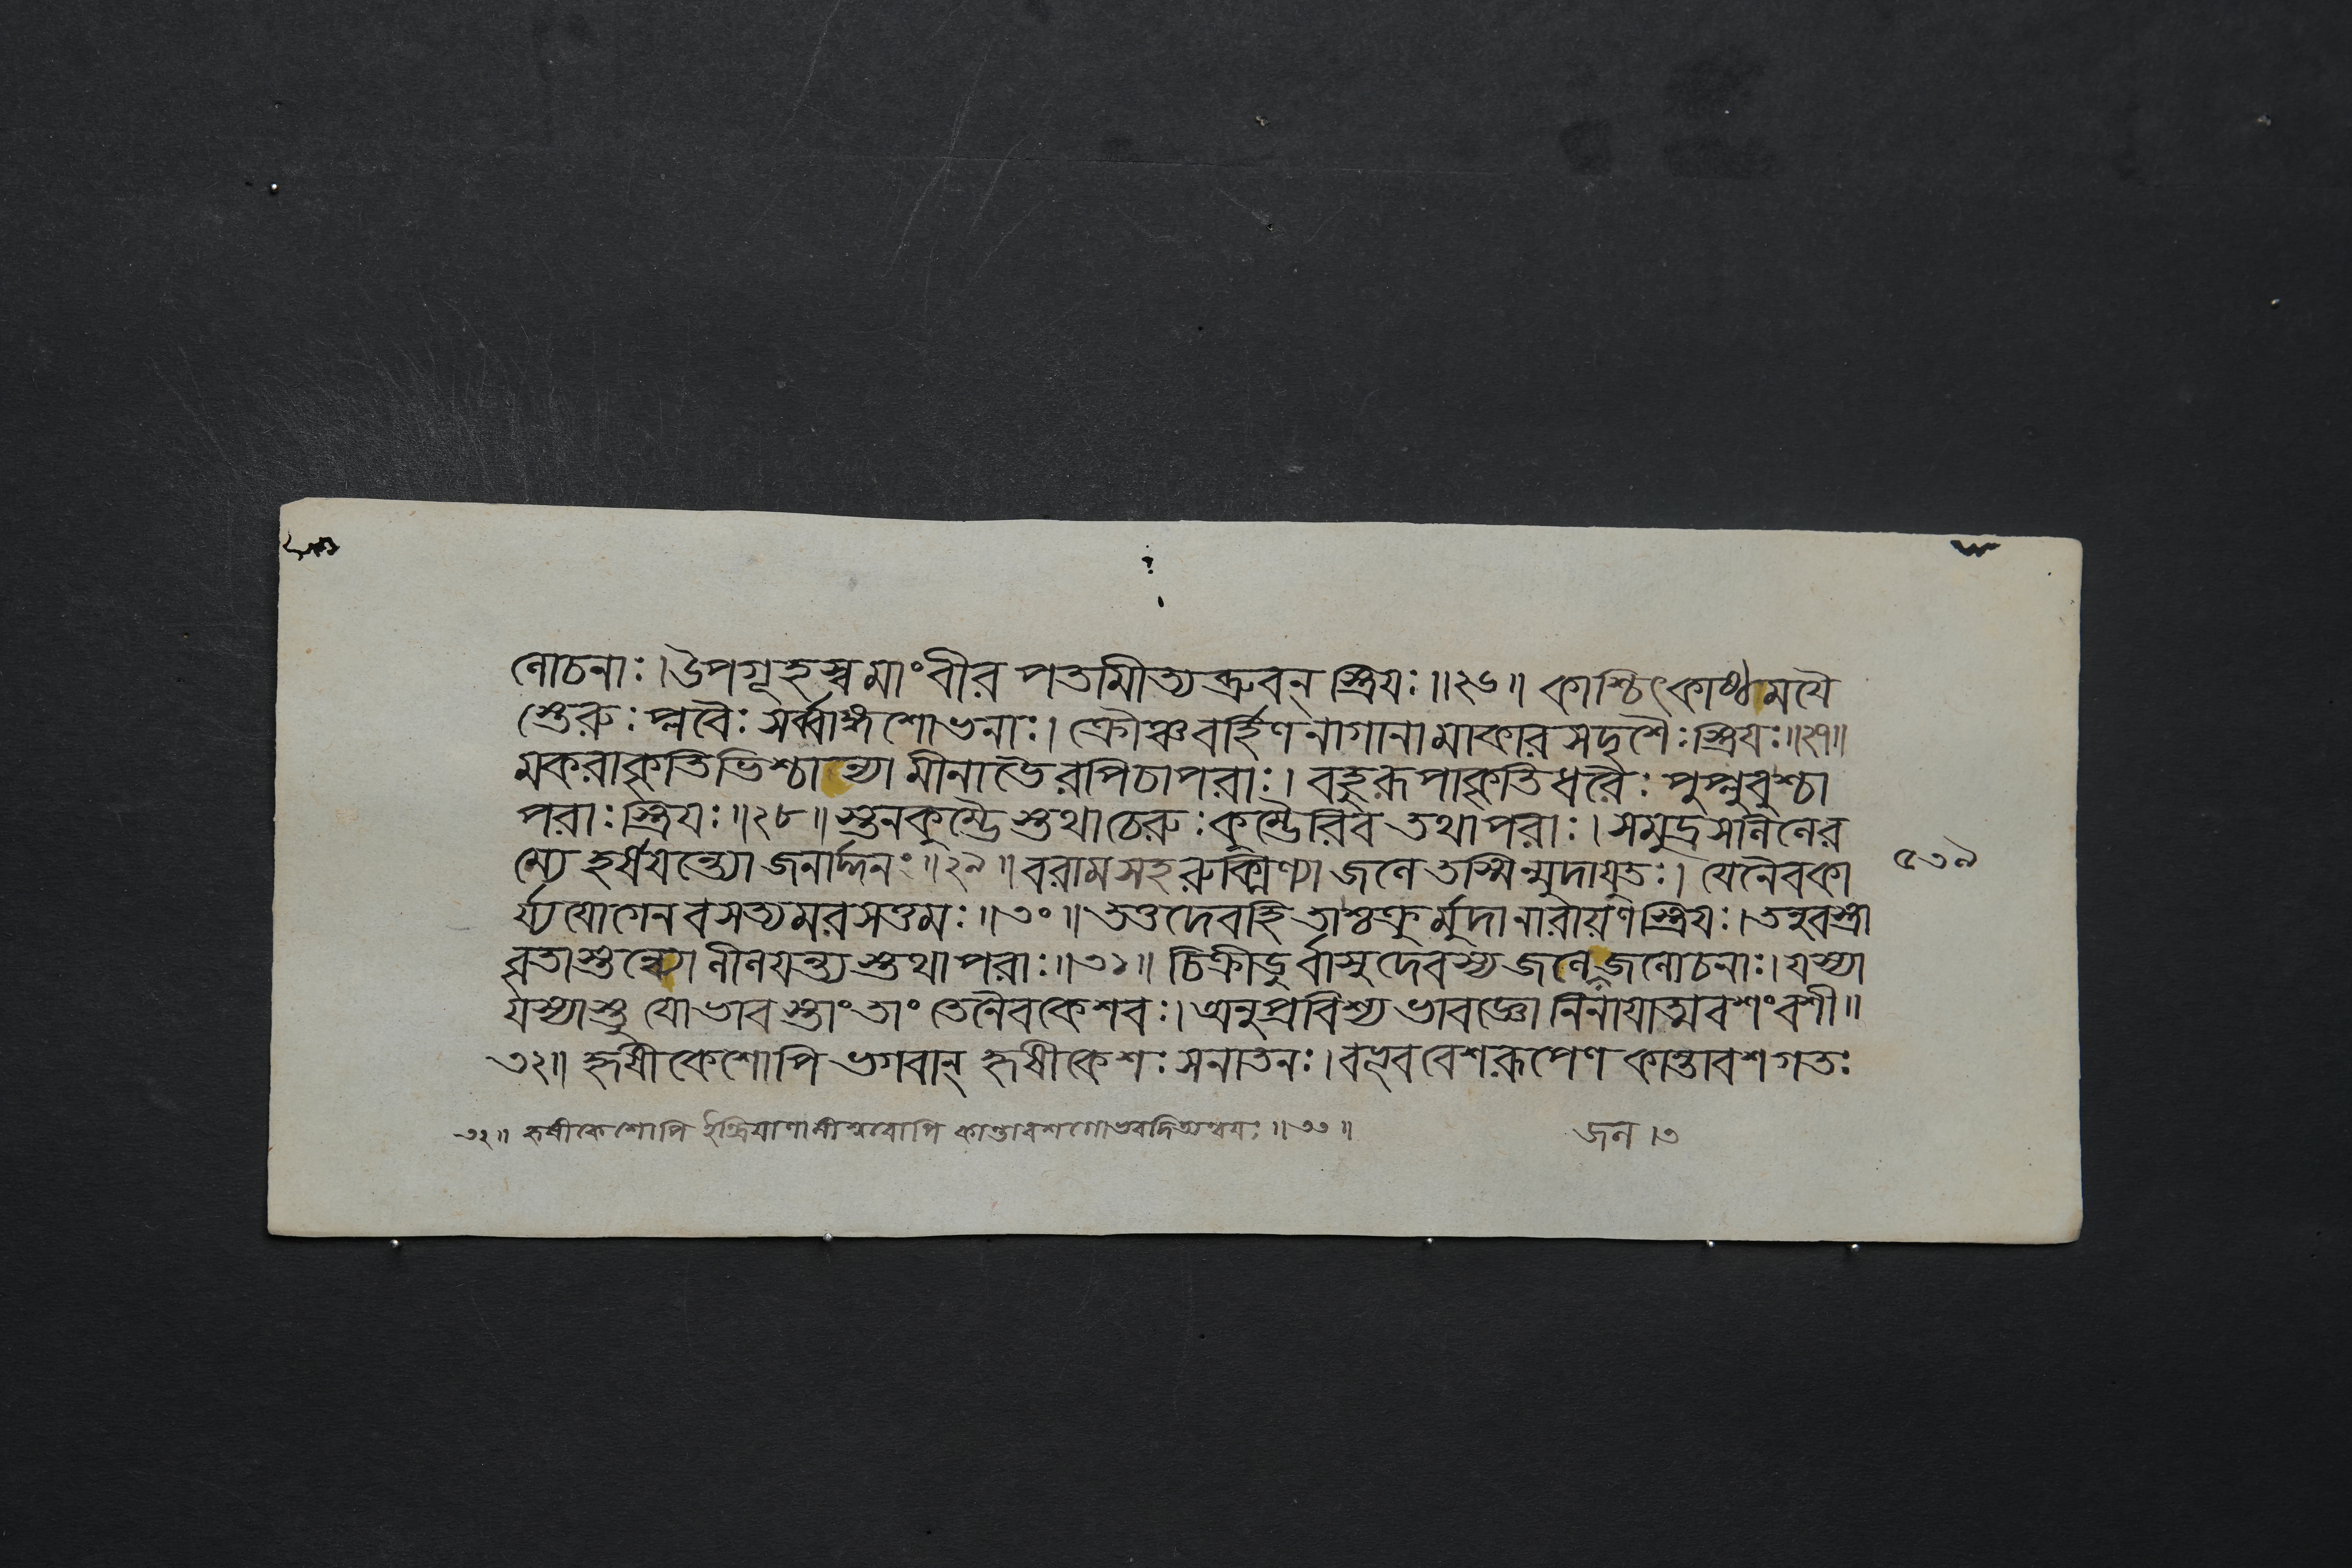 লোচনাঃ। উপগূহস্ব মাং বীর পতামীত্যব্রুবন্ স্ত্রিয়ঃ॥২৬॥ কাশ্চিৎ কাষ্ঠময়ৈ
স্তেরুঃ প্লবৈঃ সর্ব্বাঙ্গশোভনাঃ। ক্রৌঞ্চবর্হিণনাগানামাকারসদৃশৈঃ স্ত্রিয়ঃ॥২৭॥
মকরাকৃতিভিশ্চান্যা মীনাভৈরপি চাপরাঃ। বহুরূপাকৃতিধরৈঃ পুপ্লুবুশ্চা
পরাঃ স্ত্রিয়ঃ॥২৮॥ স্তনকুম্ভৈস্তথা তেরুঃ কুম্ভৈরিব তথাপরাঃ। সমুদ্রসলিলে র
ম্যে হর্ষয়ন্ত্যো জনার্দ্দনং॥২৯॥ ররাম সহ রুক্মিণ্যা জলে তস্মিন্মুদা যুতঃ। যেনৈব কা
র্য্যযোগেন রমত্যমরসত্তমঃ॥৩০॥ তত্তদেব হি তাশ্চক্রুর্মুদা নারায়ণস্ত্রিয়ঃ। তনুবস্ত্রা
বৃতাস্তন্ব্যো লীলয়ন্ত্যস্তথাপরাঃ॥৩১॥ চিক্রীডুর্বাসুদেবস্য জলে জলজলোচনাঃ। যস্যা
যস্যাস্তু যো ভাবস্তাং তাং তেনৈব কেশবঃ। অনুপ্রবিশ্য ভাবজ্ঞো নিনায়াত্মবশং বশী॥
৩২॥ হৃষীকেশোপি ভগবান্ হৃষীকেশঃ সনাতনঃ। বভূব বেশরূপেণ কান্তাবশগতঃ
৫৩৯
৩২॥ হৃষীকেশোপি ইন্দ্রিয়াণামীশ্বরোপি কান্তাবশগোভবদিত্যন্বয়ঃ॥৩৩॥
জল।৩